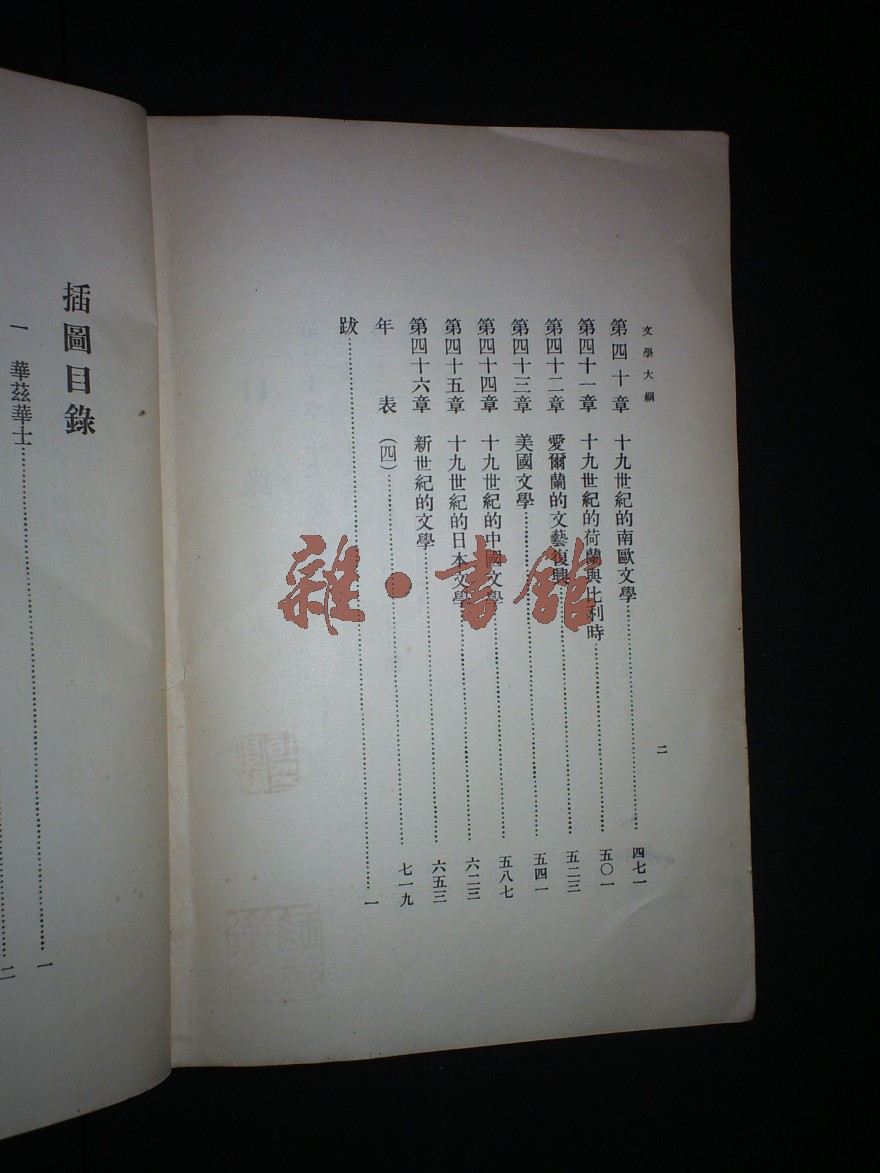 文學大綱
第四十章 十九世紀的南歐文學……四七一
第四十一章 十九世紀的荷蘭與比利時……五〇一
第四十二章 愛爾蘭的文藝復興……五二三
第四十三章 美國文學……五四一
第四十四章 十九世紀的中國文學……五八七
第四十五章 十九世紀的日本文學……六二三
第四十六章 新世紀的文學……六五三
年表(四)……七一九
跋……一
二
插圖目錄
一 華茲華士……一
二
雜·書館